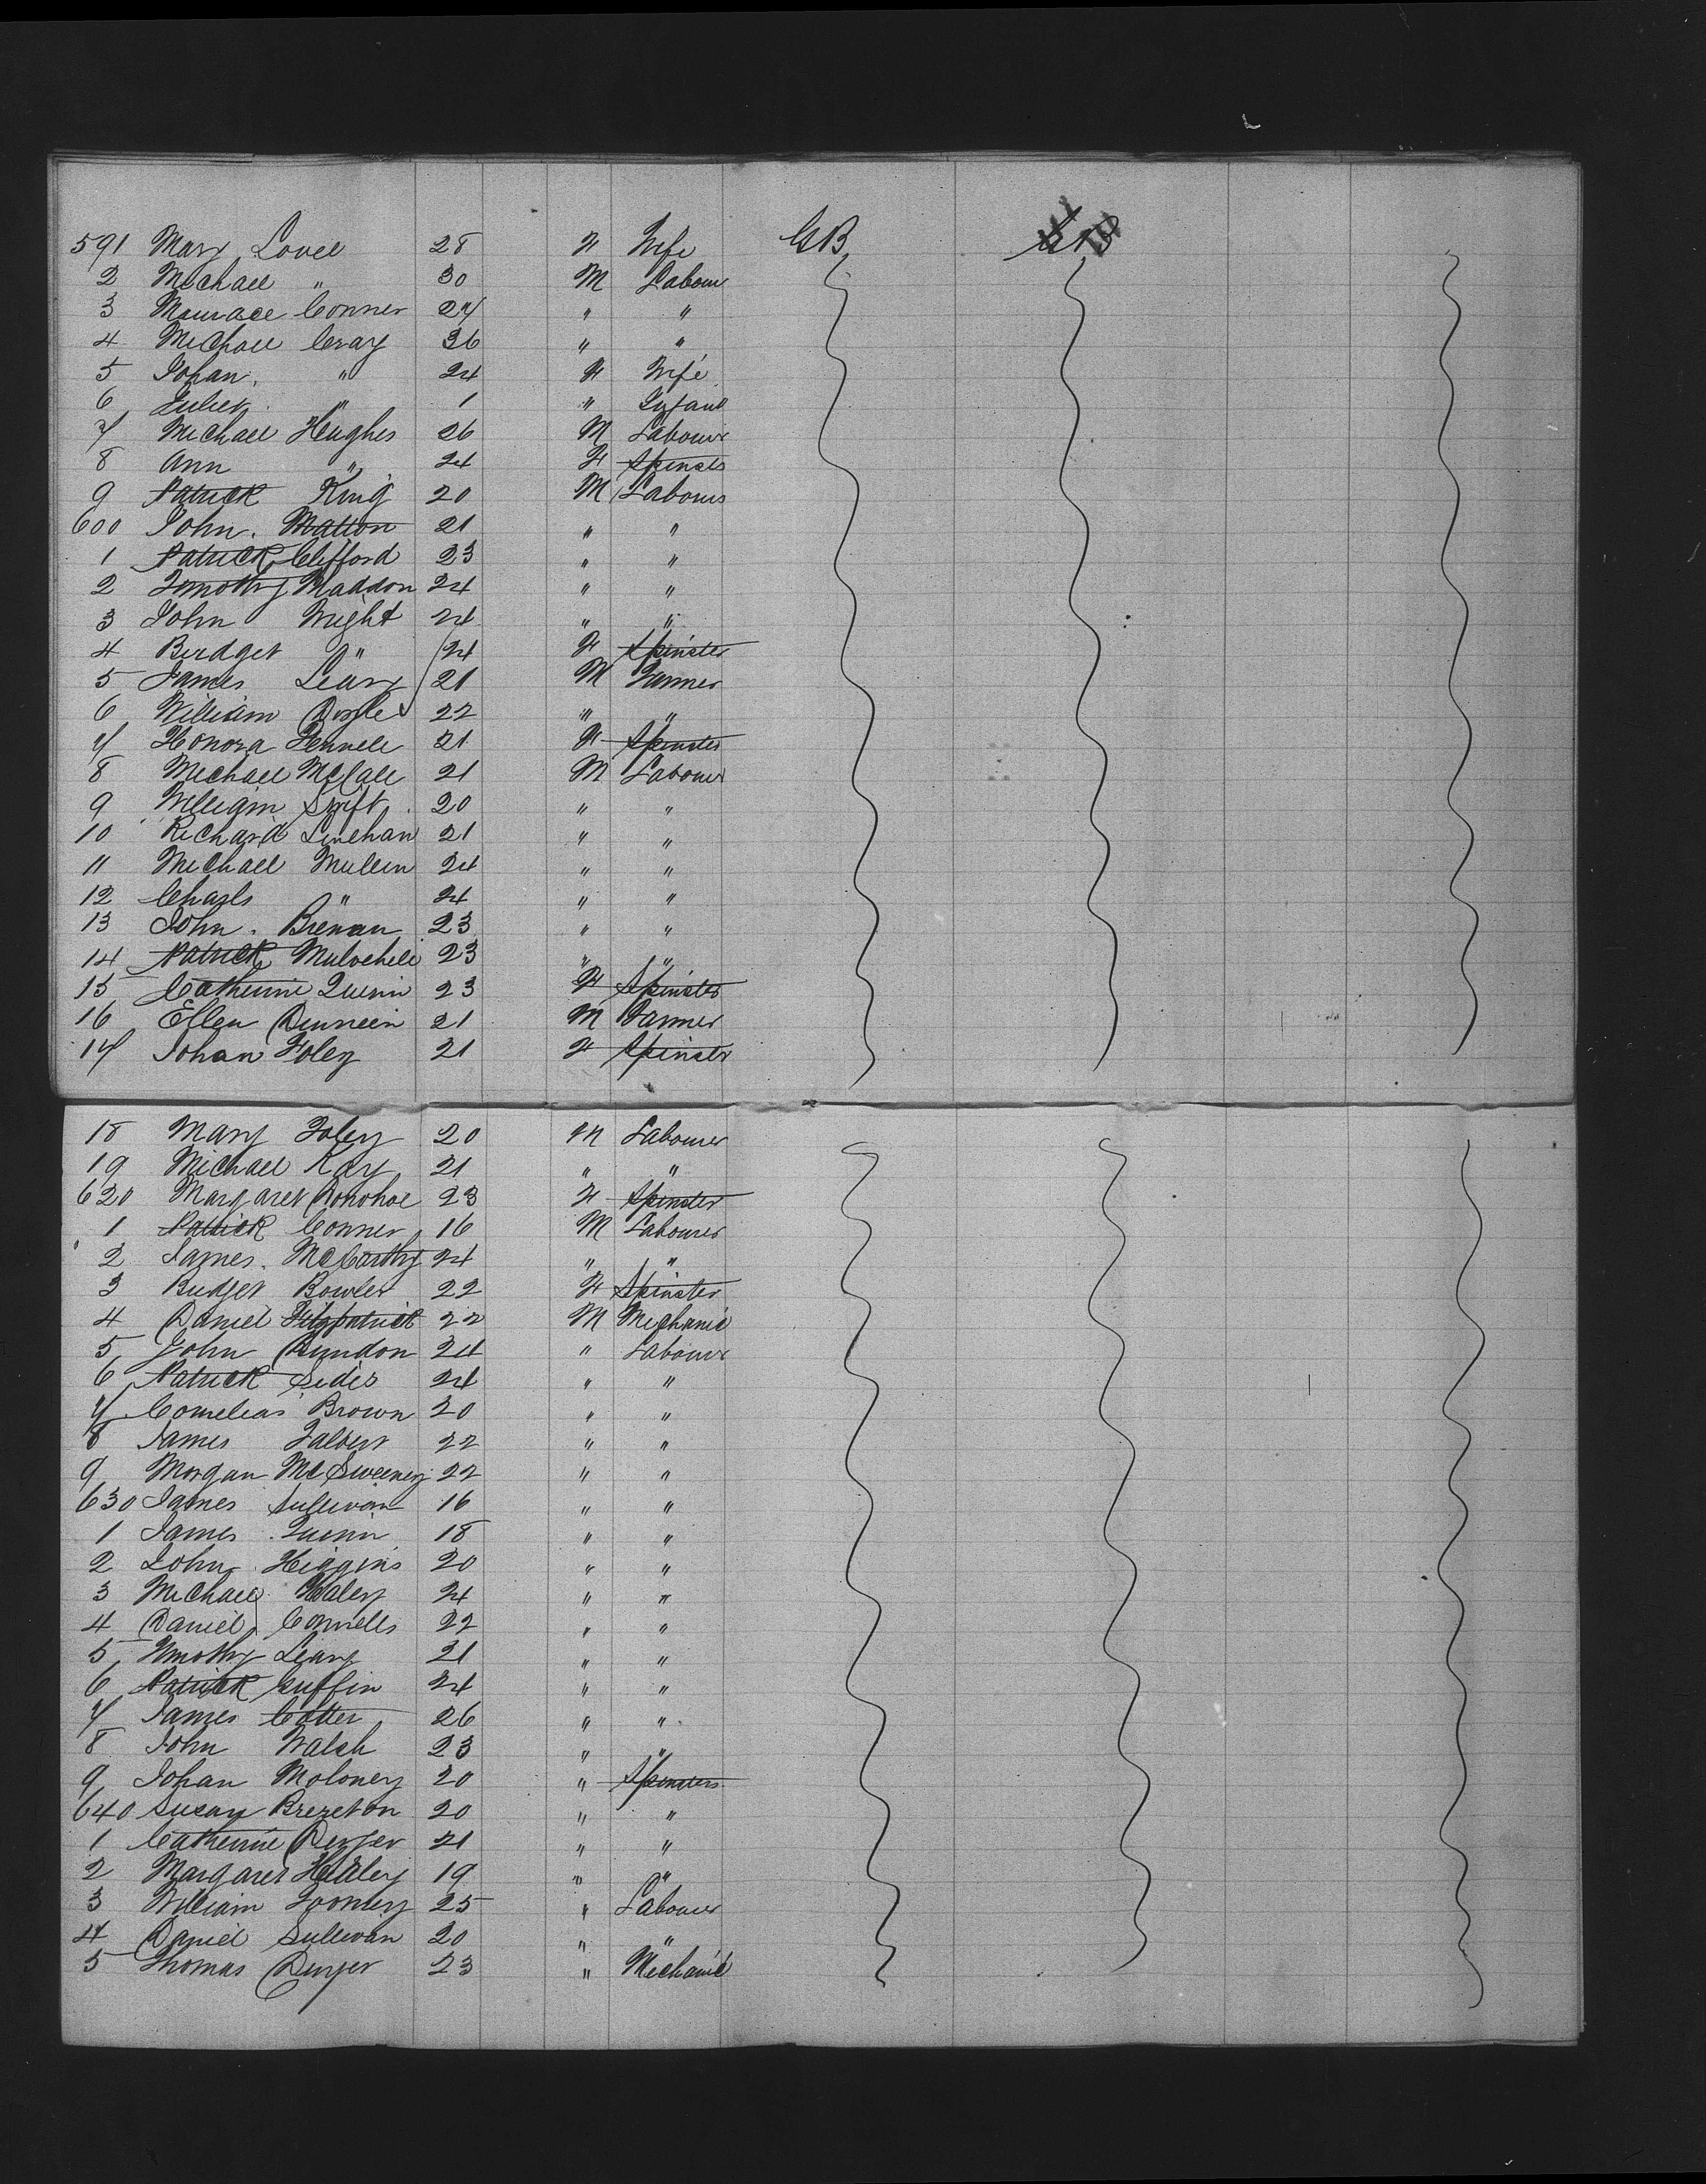 591 Mary Lovell 28 F Wife GB
2 Michael " 30 M Labour
3 Maurace Conner 27 " "
4 Michael Cray 36 " "
5 Johan " 24 F Wife
6 Juliet " 1 " Infant
7 Michael Hughes 26 M Labour
8 Ann " 24 F Spinster
9 Patrick King 20 M Labour
600 John Matton 21 " "
1 Patrick Clifford 23 " "
2 Timothy Maddon 24 " "
3 John Wright 24 " "
4 Bridget " 24 F Spinster
5 James Leary 21 M Farmer
6 William Doyle 22 " "
7 Honora Fennell 21 F Spinster
8 Michael McCall 21 M Labour
9 William Swift 20 " "
10 Richard Linehan 21 " "
11 Michael Mullin 24 " "
12 Charls " 24 " "
13 John Brenan 23 " "
14 Patrick 23 " "
15 Catherine Quinn 23 F Spinster
16 Ellen Dinneen 21 M Farmer
17 Johan Foley 21 F Spinster
18 Mary Foley 20 M Labourer
19 Michael Kay 21 " "
620 Margaret Donohoe 23 F Spinster
1 Patrick Conner 16 M Labourer
2 James McCarthy 24 " "
3 Bridget Bowler 22 F Spinster
4 Daniel Fitzpatrick 22 M Mechanic
5 John Dundon 24 " Labour
6 Patrick 24 " "
7 Cornelias Brown 20 " "
8 James Talbert 22 " "
9 Morgan McSweeney 22 " "
630 James Sullivan 16 " "
1 James Quinn 18 " "
2 John Higgins 20 " "
3 Michael Haley 24 " "
4 Daniel Connells 22 " "
5 Timothy Leary 21 " "
6 Patrick Griffin 24 " "
7 James Cotter 26 " "
8 John Walsh 23 " "
9 Johan Moloney 20 " Spinsters
640 Susan Brereton 20 " "
1 Catherine 21 " "
2 Margaret Healey 19 " "
3 William Toomey 25 " Labour
4 Daniel Sullivan 20 " "
5 Thomas 23 " Mechanic